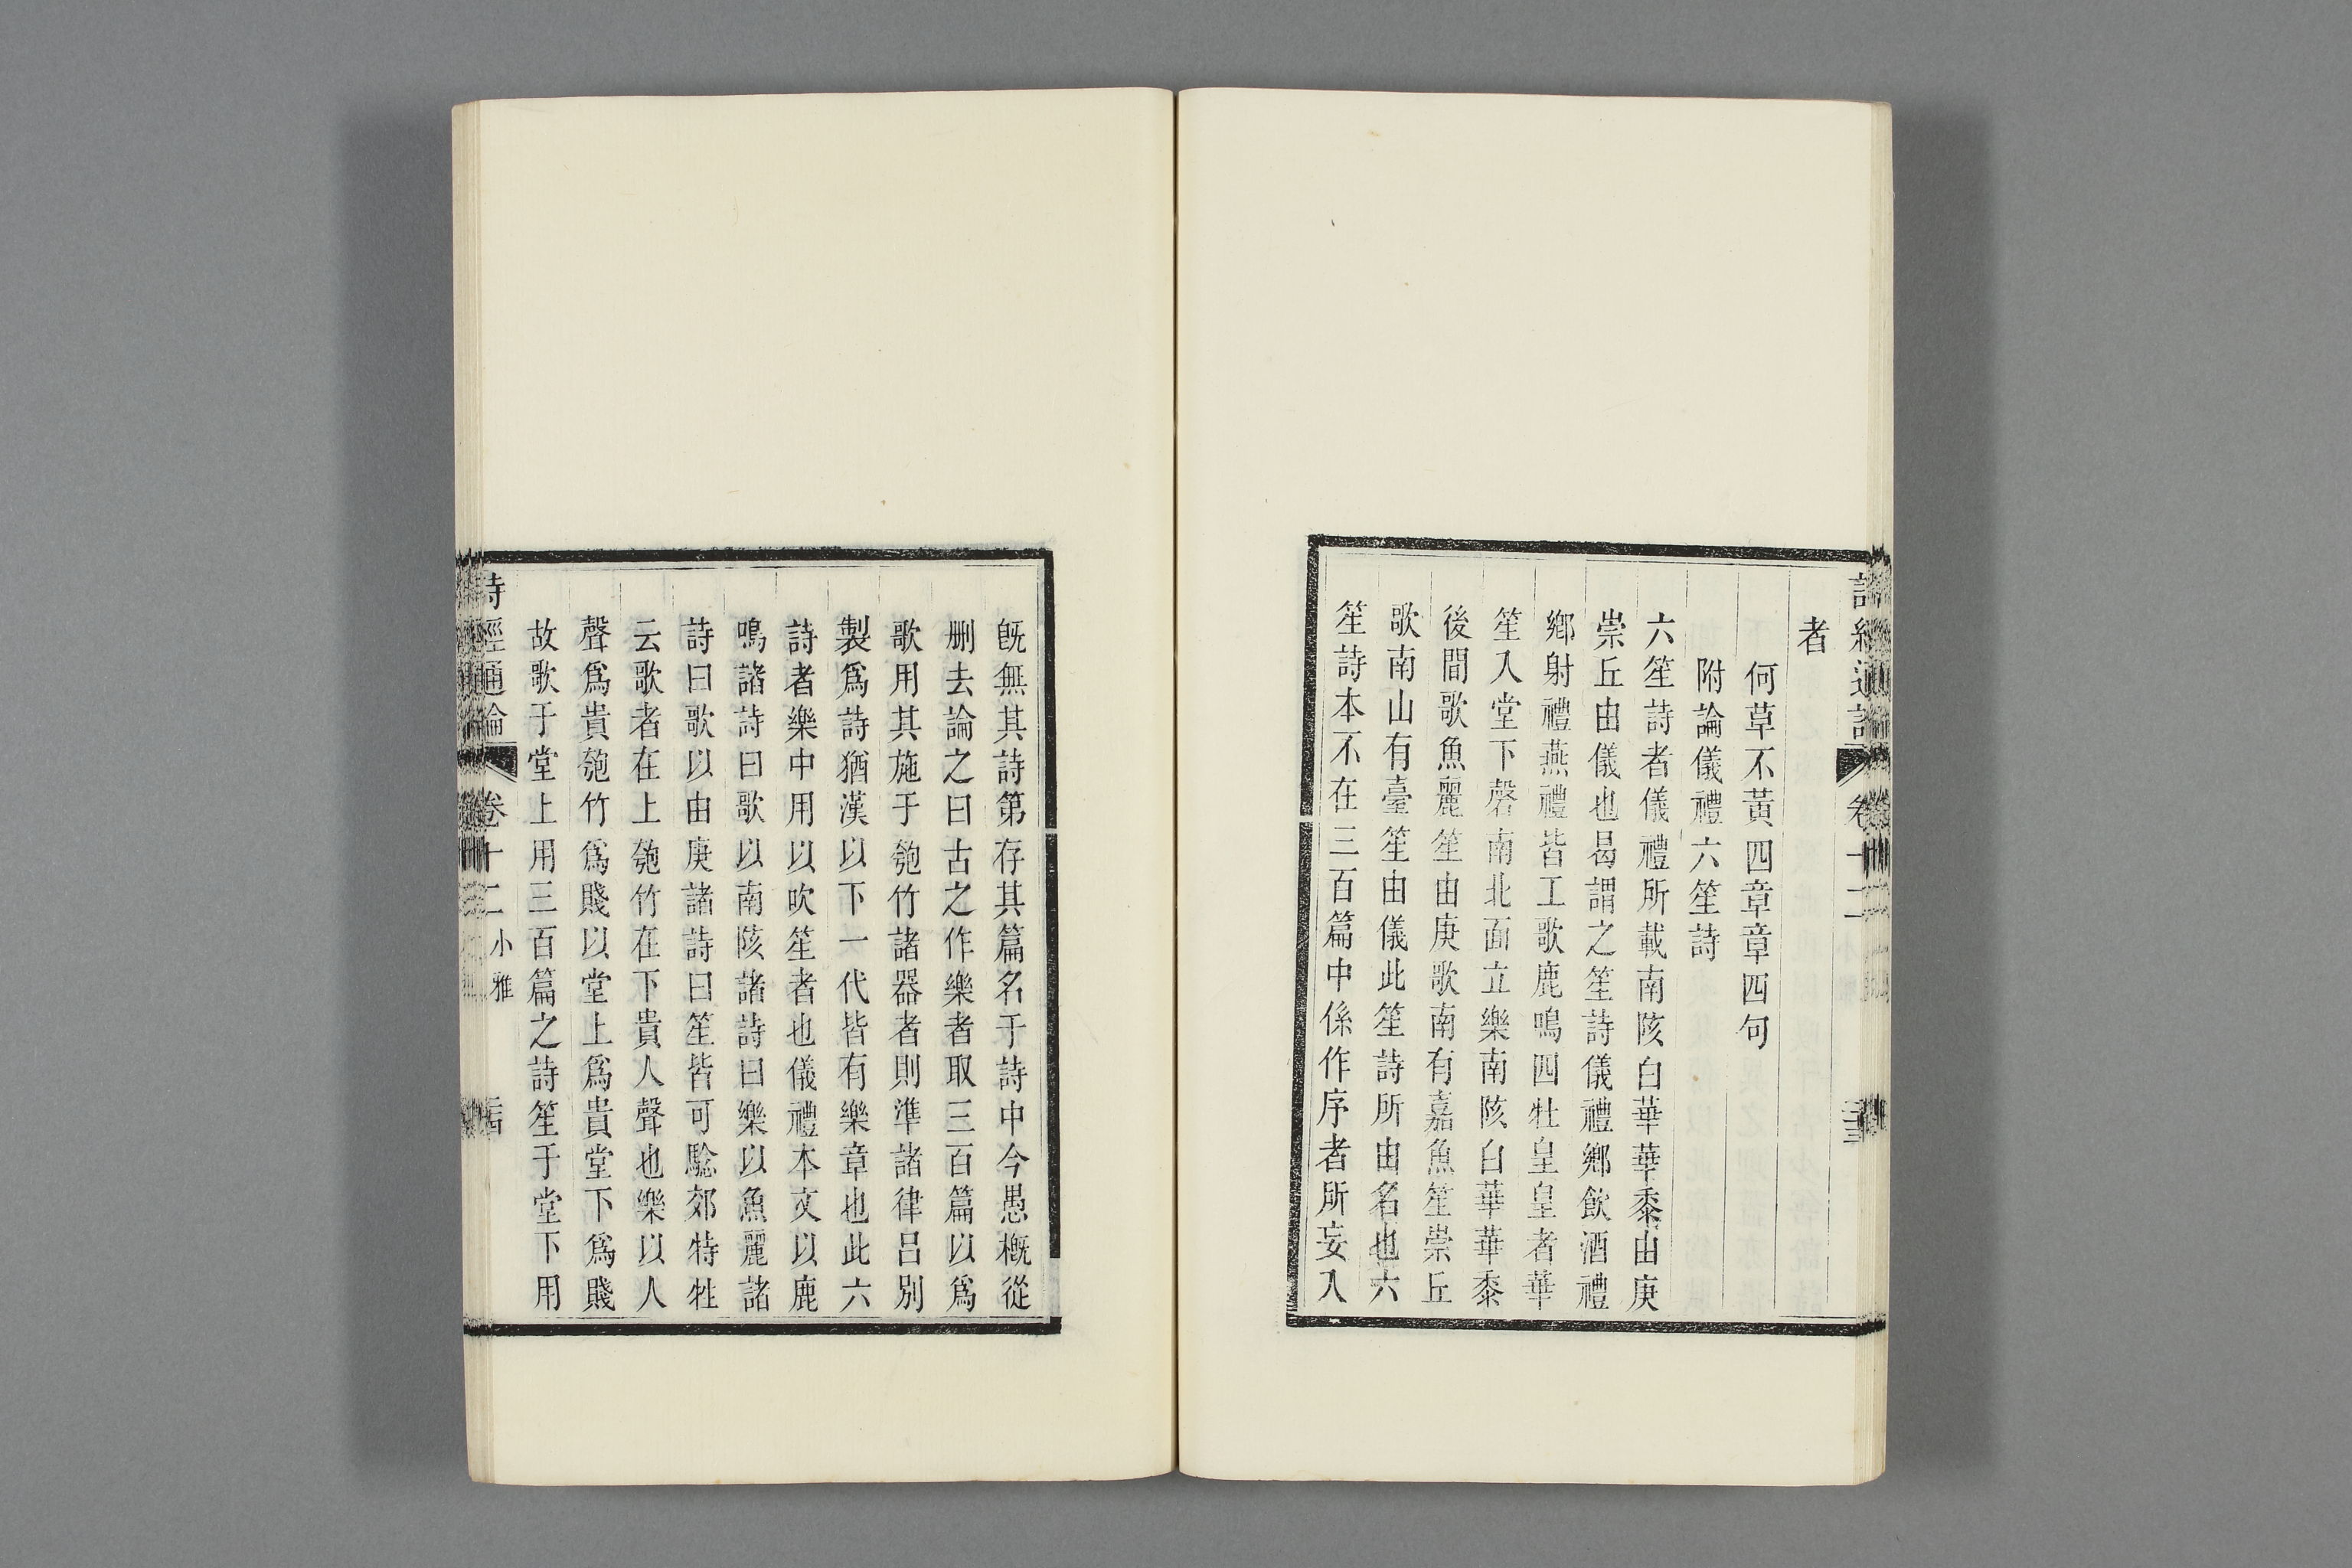 者
何草不黃四章章四句
附論儀禮六笙詩
六笙詩者儀禮所載南陔白華華黍由庚
崇丘由儀也曷謂之笙詩儀禮鄉飲酒禮
鄉射禮燕禮皆工歌鹿鳴四牡皇皇者華
笙入堂下磬南北面立樂南陔白華華黍
後間歌魚麗笙由庚歌南有嘉魚笙崇丘
歌南山有臺笙由儀此笙詩所由名也六
笙詩本不在三百篇中係作序者所妄入
既無其詩第存其篇名于詩中今愚概從
刪去論之曰古之作樂者取三百篇以爲
歌用其施于匏竹諸器者則準諸律呂別
製爲詩猶漢以下一代皆有樂章也此六
詩者樂中用以吹笙者也儀禮本文以鹿
鳴諸詩曰歌以南陔諸詩曰樂以魚麗諸
詩曰歌以由庚諸詩曰笙皆可驗郊特牲
云歌者在上匏竹在下貴人聲也樂以人
聲爲貴匏竹爲賤以堂上爲貴堂下爲賤
故歌于堂上用三百篇之詩笙于堂下用
詩經通論 卷十二 小雅